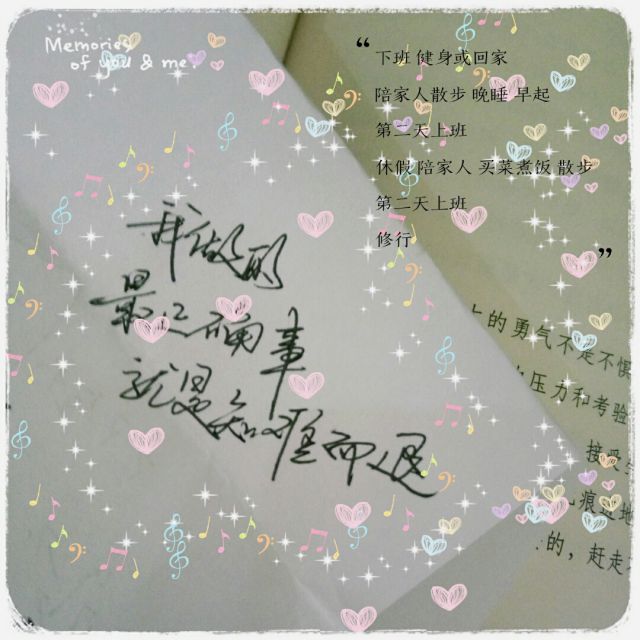 Memories
of you & me
“
下班 健身或回家
陪家人散步 晚睡 早起
第二天上班
休假 陪家人 买菜煮饭 散步
第二天上班
修行
”
我做的
最正确事
就是知难而退
上的勇气不是不惧
压力和考验
接受
痕
地
的，赶走